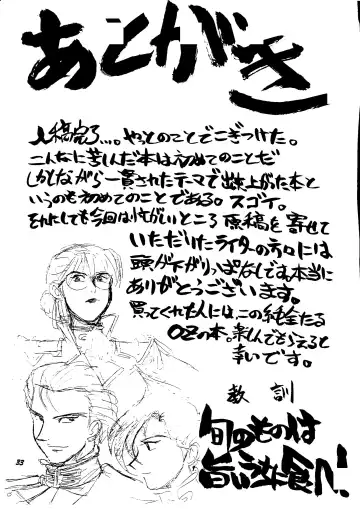 あとがき
入稿完了…。やっとのことでこぎつけた。
こんなに苦しんだ本は初めてのことだ
しかしながら一貫されたテーマで出来上がった本と
いうのも初めてのことである。スゴイ。
それにしても今回は忙がしいところ原稿を寄せて
いただけたライターの方々には
頭が下がりっぱなしです。本当に
ありがとうございます。
買ってくれた人には、この純全たる
OZの本。楽しんでもらえると
幸いです。
教訓
旬のものは
旨いうちに食べ!
33